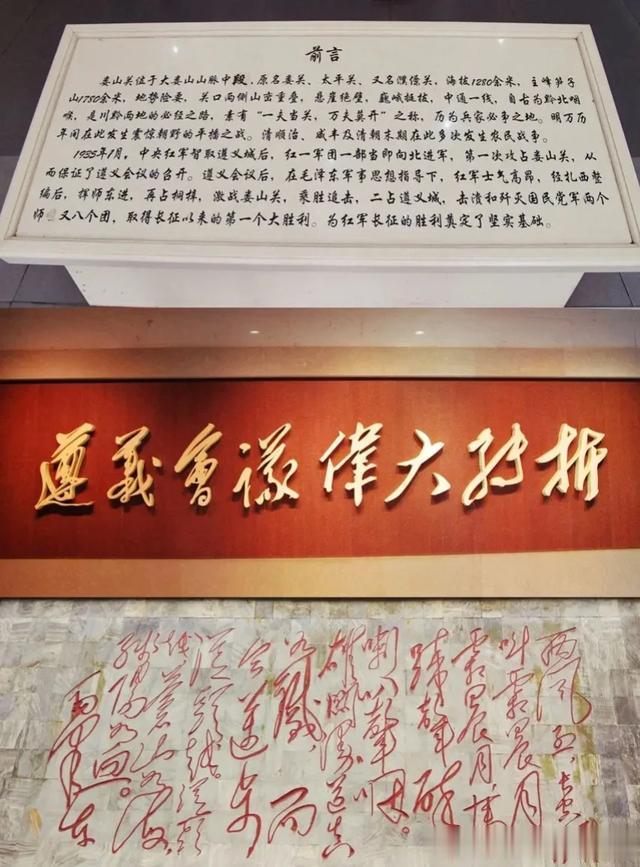 前言
娄山关位于大娄山山脉中段,原名娄关、太平关、又名濮关,海拔1280余米,主峰笋子
山1780余米,地势险要,关口两侧山峦重叠,悬崖绝壁,巍峨挺拔,中通一线,自古为黔北咽
喉,是川黔两地的必经之路,素有“一夫当关,万夫莫开”之称,历为兵家必争之地。明万历
年间在此发生震惊朝野的平播之战。清顺治、咸丰及清朝末期在此多次发生农民战争。
1935年1月,中央红军智取遵义城后,红一军团一部当即向北进军,第一次攻占娄山关,从
而保证了遵义会议的召开。遵义会议后,在毛泽东军事思想指导下,红军士气高昂,经扎西整
编后,挥师东进,再占桐梓,激战娄山关,乘胜追击,二占遵义城,击溃和歼灭国民党军两个
师又八个团,取得长征以来的第一个大胜利。为红军长征的胜利奠定了坚实基础。
遵義會議偉大轉折
西风烈,长空
叫霜晨月
霜晨月,马
蹄声碎
喇叭声咽。
雄关漫道真
如铁,而
今迈步
从头越。从头
越苍山如海
残阳如血。
毛泽东